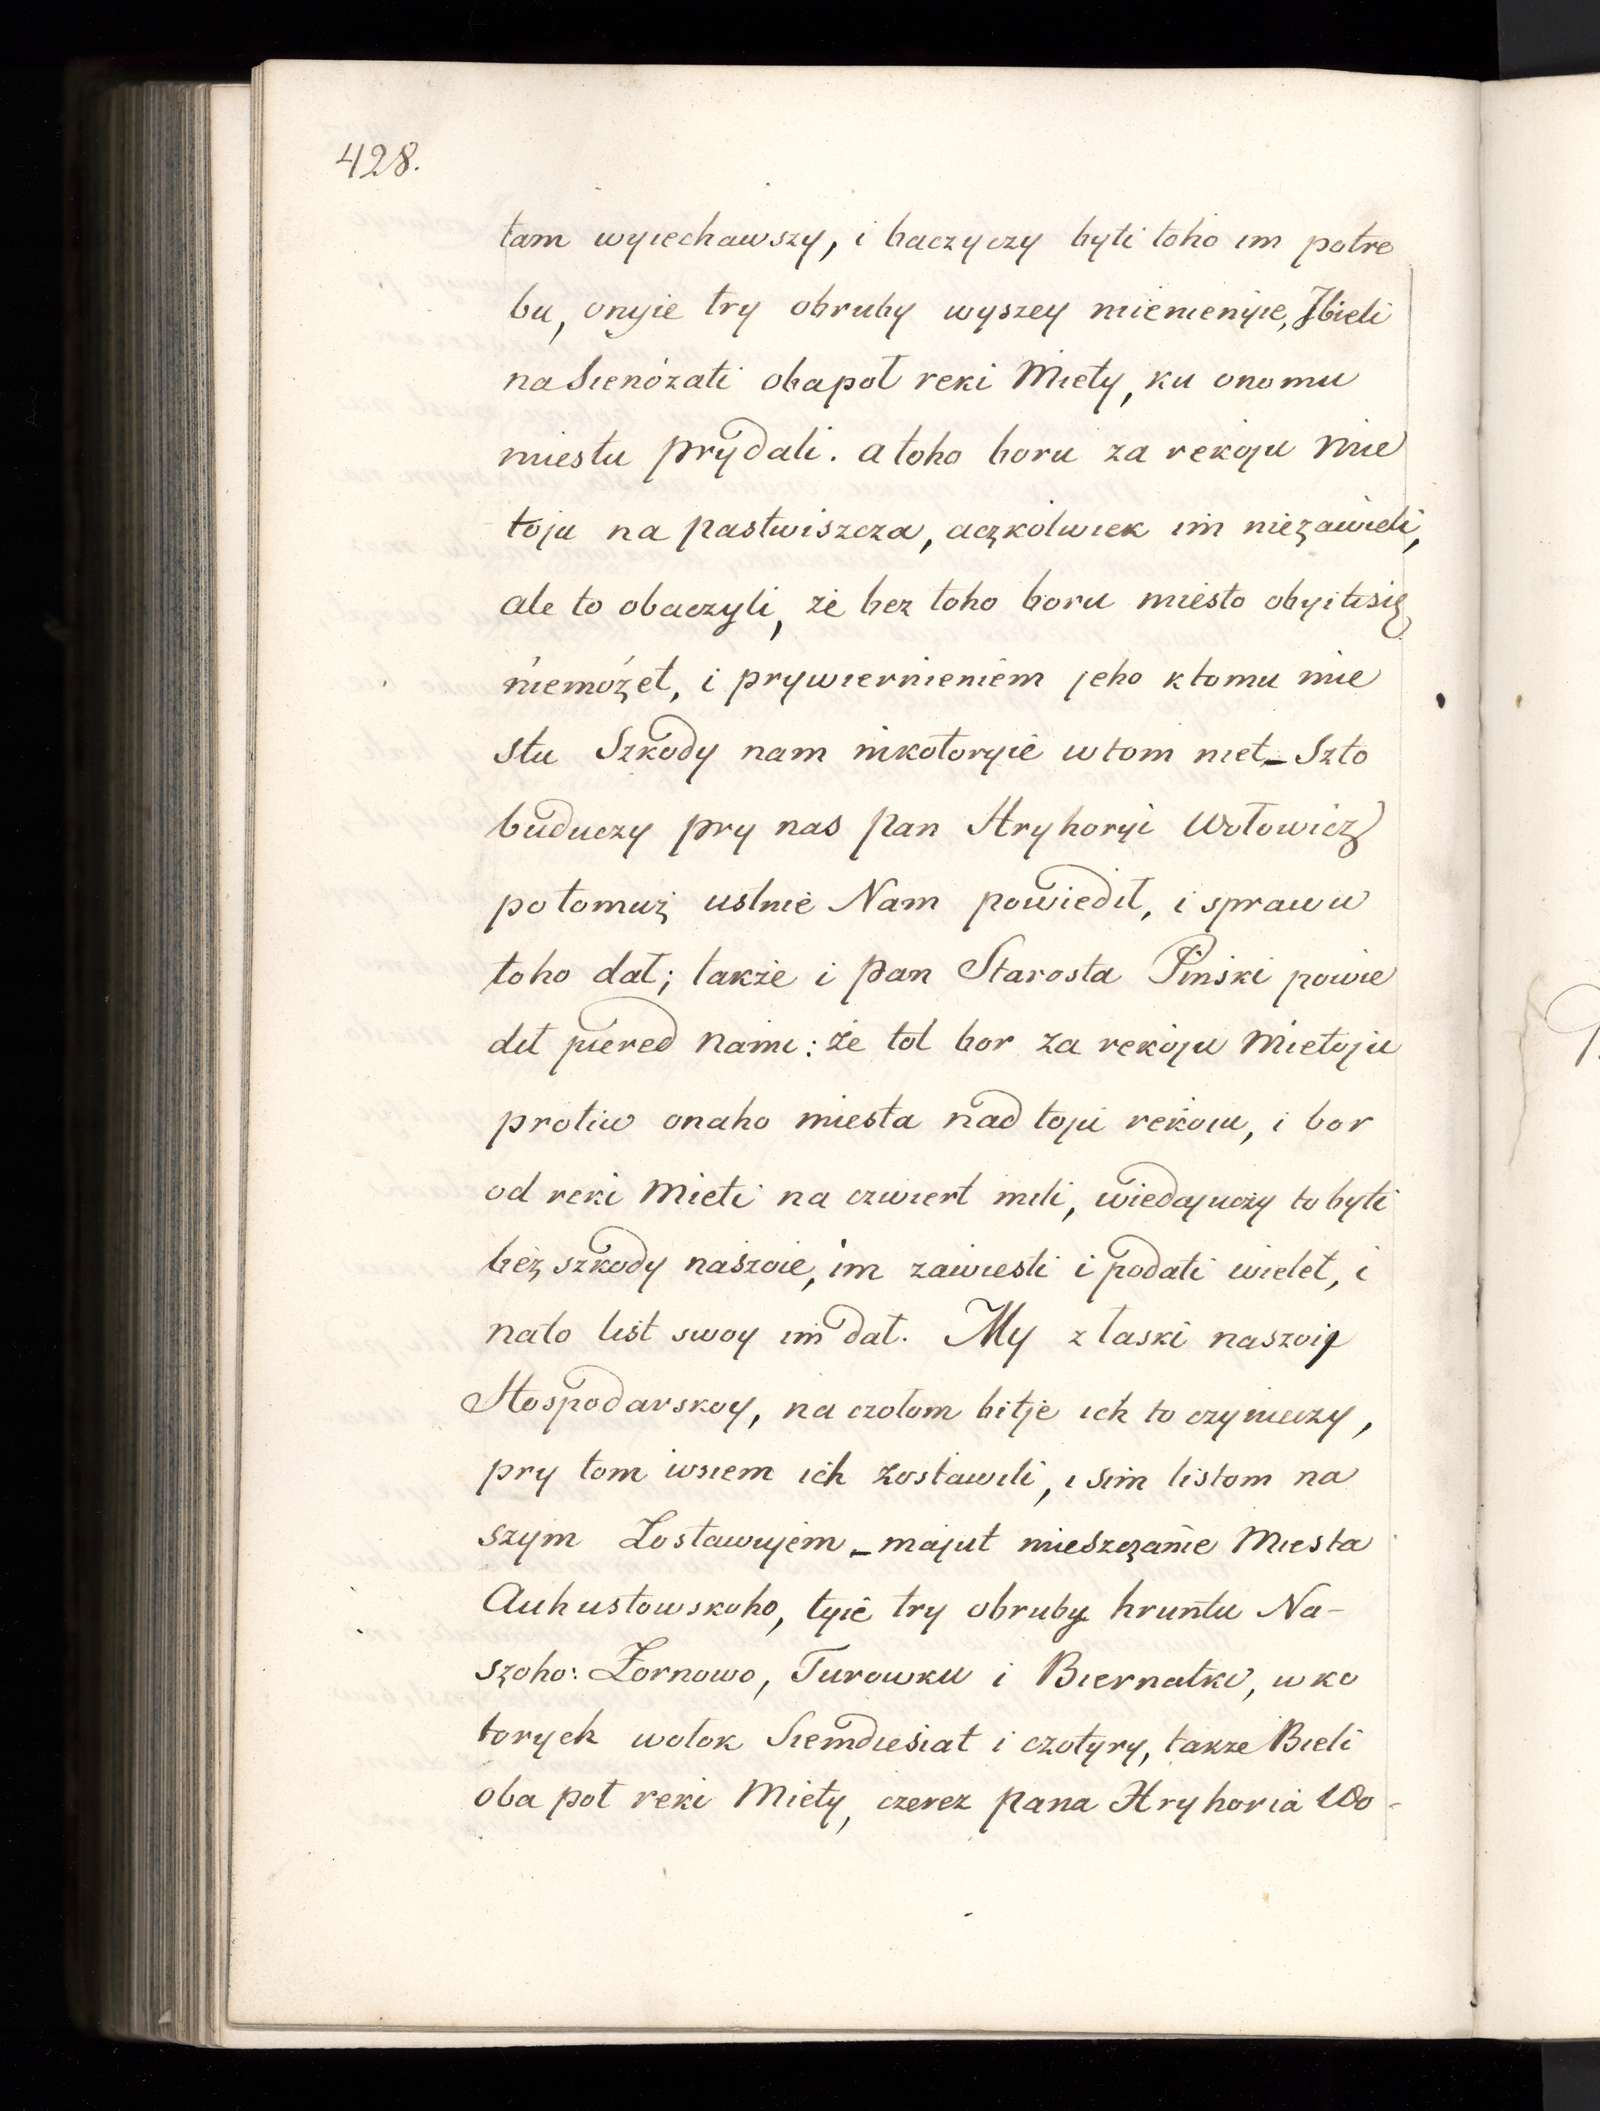 428.
tam wyiechawszy, i baczyczy byti toho im potre
bu, onyie try obruby wyszey mienienyie, Ibieli
na Sienożati obapoł reki Miety, ku onomu
miestu prydali. a toho boru za rekoju Mie
toju na pastwiszcza, aczkolwiek im niezawieli,
ale to obaczyli, że bez toho boru miesto obyitisię
niemożet, i prywiernieniem jeho ktomu mie
stu Szkody nam nikotoryie wtom niet_ Szto
buduczy pry nas pan Hryhoryi Wołowicz
potomuż ustnie Nam powiedił, i sprawu
toho dał; takżie i pan Starosta Pinski powie
dił piered nami: że tot bor za rekoju Mietoju
protiw onaho miesta nad toju rekoiu, i bor
od reki Mieti na czwiert mili, wiedajuczy to byti
bez szkody naszoie, im zawiesti i podati wielet, i
nato list swoy im dał. My z łaski naszoiy
Hospodarskoy, na czołom bitje ich to czyniuczy,
pry tom wsiem ich Zostawili, i sim listom na
szym Zostawujem_ majut mieszczanie Miesta
Auhustowskoho, tyie try obruby hruntu Na-
szoho: Żornowo, Turowku i Biernatki, w ko
torych wołok Siemdiesiat i czotyry, takze Bieli
oba poł reki Miety, czerez pana Hryhoria Wo-